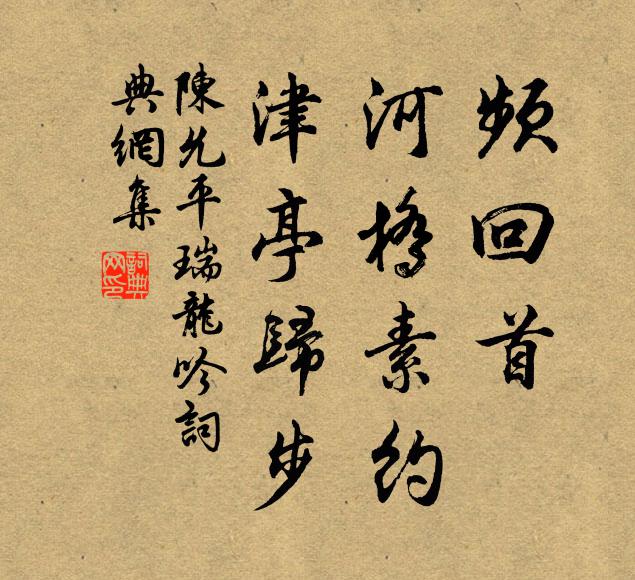 頻回首
河橋素約
津亭歸步
陳允平瑞龍吟詞
典網集
詞典網印